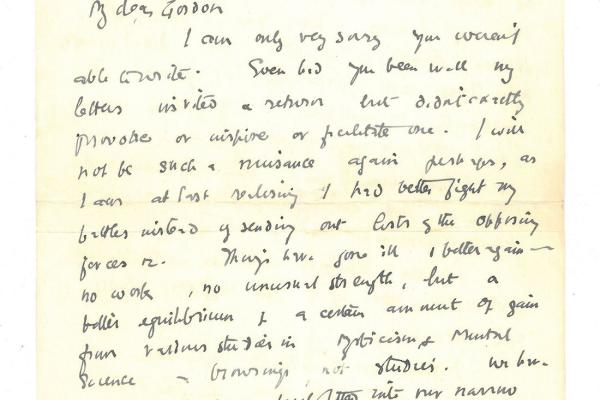 My dear Gordon
I am only very sorry you weren't
able to write. Even had you been well my
letters invited a return but didn't exactly
provoke or inspire or facilitate one. I will
not be such a nuisance again perhaps, as
I am at last realising I had better fight my
battles instead of sending out lists of the opposing
forces &c. Things have gone ill & better again —
no work, no unusual strength, but a
better equilibrium & a certain amount of gain
from various studies in Mysticism & Mental
Science — browsings, not studies.
into our narrow